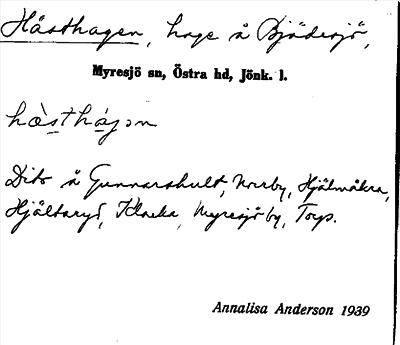 Hästhagen, hage å Bjädesjö,
Myresjö sn, Östra hd, Jönk. l.
hæ̀sthág̣ən
Dito å Gunnarshult, Norrby, Hjälmåkra,
Hjältaryd, Klacka, Myresjö by, Torp.
Annalisa Anderson 1939